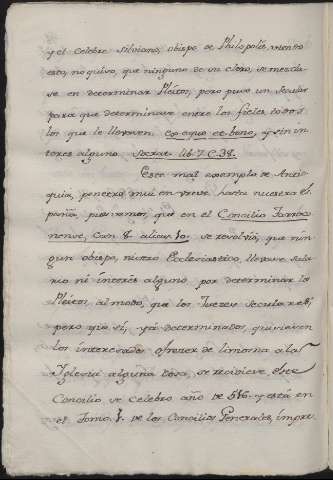 y el celebre Silviano, obispo de Philopolis, viendo
esto, no quiso, que ninguno de su clero, se mezcla-
se en determinar Pleitos, pero puso un Secular
para que determinase entre los fieles todos
los que llevasen. Ex equo et bono, y sin in
teres alguno. Socrat. lib. 7. C. 37.
Este mal exemplo de Antio
quia, penetro mui en breve hasta nuestra Es
paña, pues vemos, que en el Concilio Tarraco
nense, Can. 10. se resolvió, que nin
gun obispo, ni otro Ecclesiastico, llevase sala
rio ni interés alguno por determinar los
Pleitos, al modo, que los Jueces seculares;
pero que si, ya determinados, quisiesen
los interesados ofrecer de limosna a la
Iglesia alguna cosa, se reciviese. Este
Concilio se celebro año de 516. y está en
el Tomo de los Concilios Generales, impre